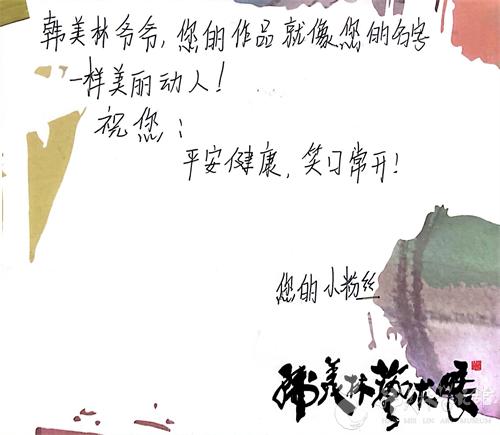 韩美林爷爷,您的作品就像您的名字
一样美丽动人!
祝您:
平安健康,笑口常开!
您的小粉丝
韩美林艺术展